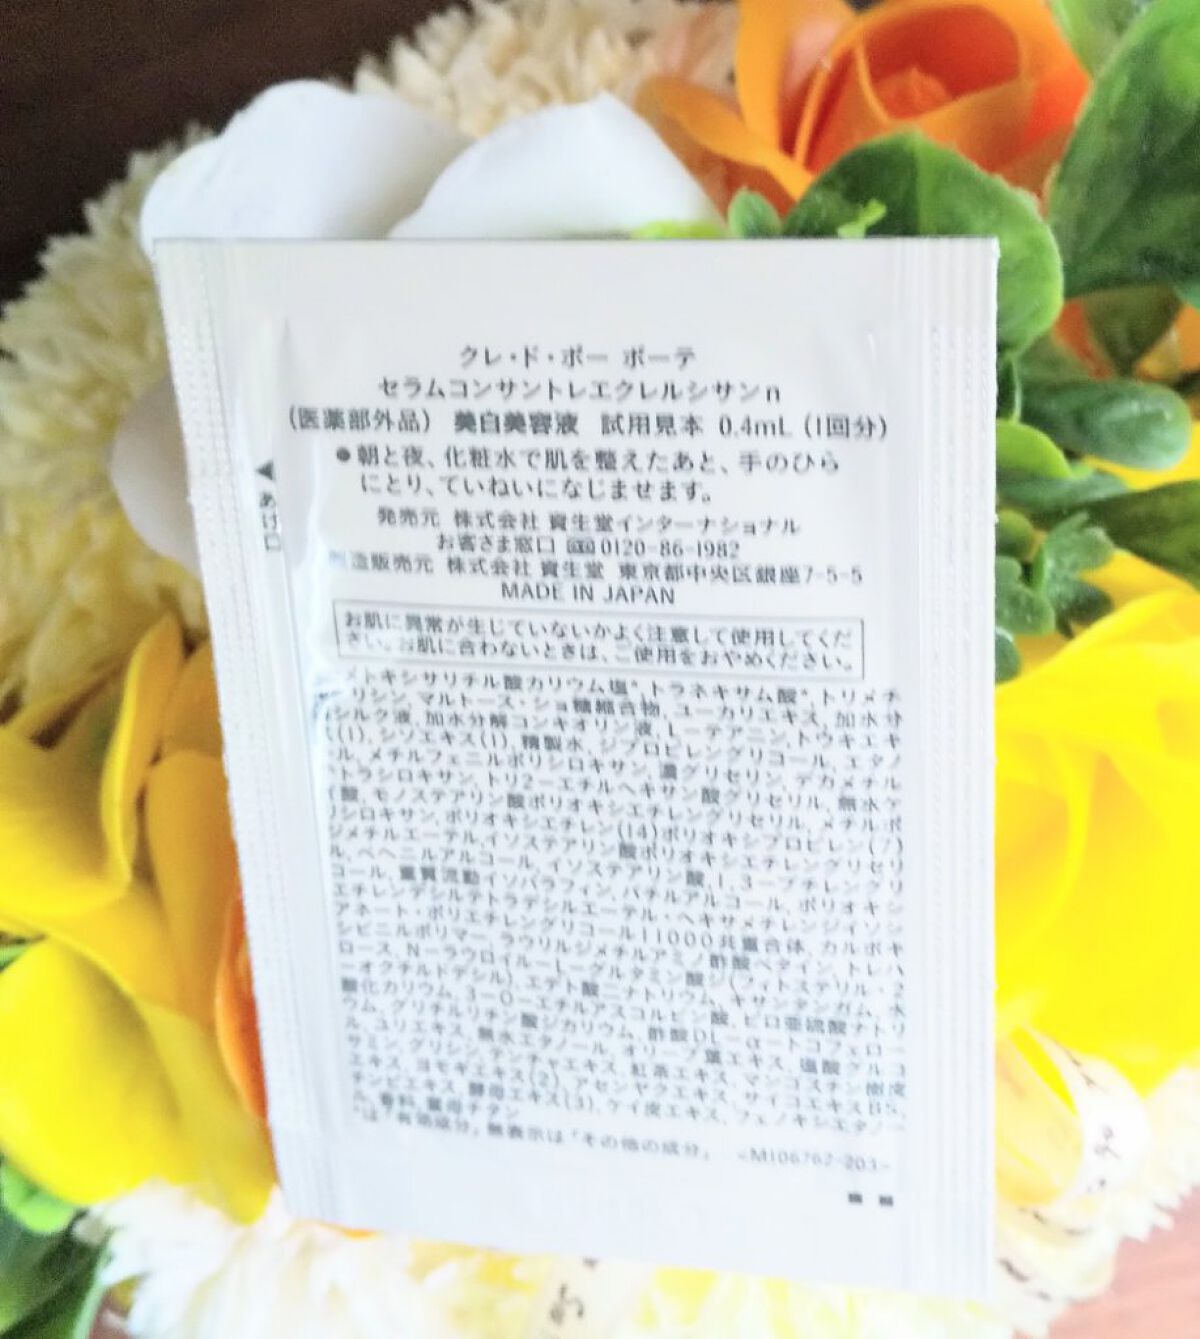 クレ・ド・ポー ボーテ
セラムコンサントレエクレルシサンn
(医薬部外品) 美白美容液 試用見本 0.4mL (1回分)
●朝と夜、化粧水で肌を整えたあと、手のひら
にとり、ていねいになじませます。
発売元 株式会社 資生堂インターナショナル
お客さま窓口 0120-86-1982
造販売元 株式会社 資生堂 東京都中央区銀座7-5-5
MADE IN JAPAN
あけ口
お肌に異常が生じていないかよく注意して使用してくだ
さい。お肌に合わないときは、ご使用をおやめください。
メトキシサリチル酸カリウム塩*, トラネキサム酸*, トリメチ
リシン, マルトース・ショ糖縮合物, ユーカリエキス, 加水分
シルク液, 加水分解コンキオリン液, L-テアニン, トウキエキ
(1), シソエキス(1), 精製水, ジプロピレングリコール, エタノ
ル, メチルフェニルポリシロキサン, 濃グリセリン, デカメチル
トラシロキサン, トリ2-エチルヘキサン酸グリセリル, 無水ケ
酸, モノステアリン酸ポリオキシエチレングリセリル, メチルポ
リシロキサン, ポリオキシエチレン(14)ポリオキシプロピレン(7)
ジメチルエーテル, イソステアリン酸ポリオキシエチレングリセリ
ル, ベヘニルアルコール, イソステアリン酸, 1,3-ブチレングリ
コール, 重質流動イソパラフィン, バチルアルコール, ポリオキシ
エチレンデシルテトラデシルエーテル・ヘキサメチレンジイソシ
アネート・ポリエチレングリコール11000共重合体, カルボキ
シビニルポリマー, ラウリルジメチルアミノ酢酸ベタイン, トレハ
ロース, N-ラウロイル-L-グルタミン酸ジ(フィトステリル・2
-オクチルドデシル), エデト酸二ナトリウム, キサンタンガム, 水
酸化カリウム, 3-O-エチルアスコルビン酸, ピロ亜硫酸ナトリ
ウム, グリチルリチン酸ジカリウム, 酢酸DL-α-トコフェロー
ル, ユリエキス, 無水エタノール, オリーブ葉エキス, 塩酸グルコ
サミン, グリシン, テンチャエキス, 紅茶エキス, マンゴスチン樹皮
エキス, ヨモギエキス(2), アセンヤクエキス, サイコエキスBS,
チンピエキス, 酵母エキス(3), ケイ皮エキス, フェノキシエタノー
ル, 香料, 雲母チタン
*は「有効成分」無表示は「その他の成分」 <M106762-203>